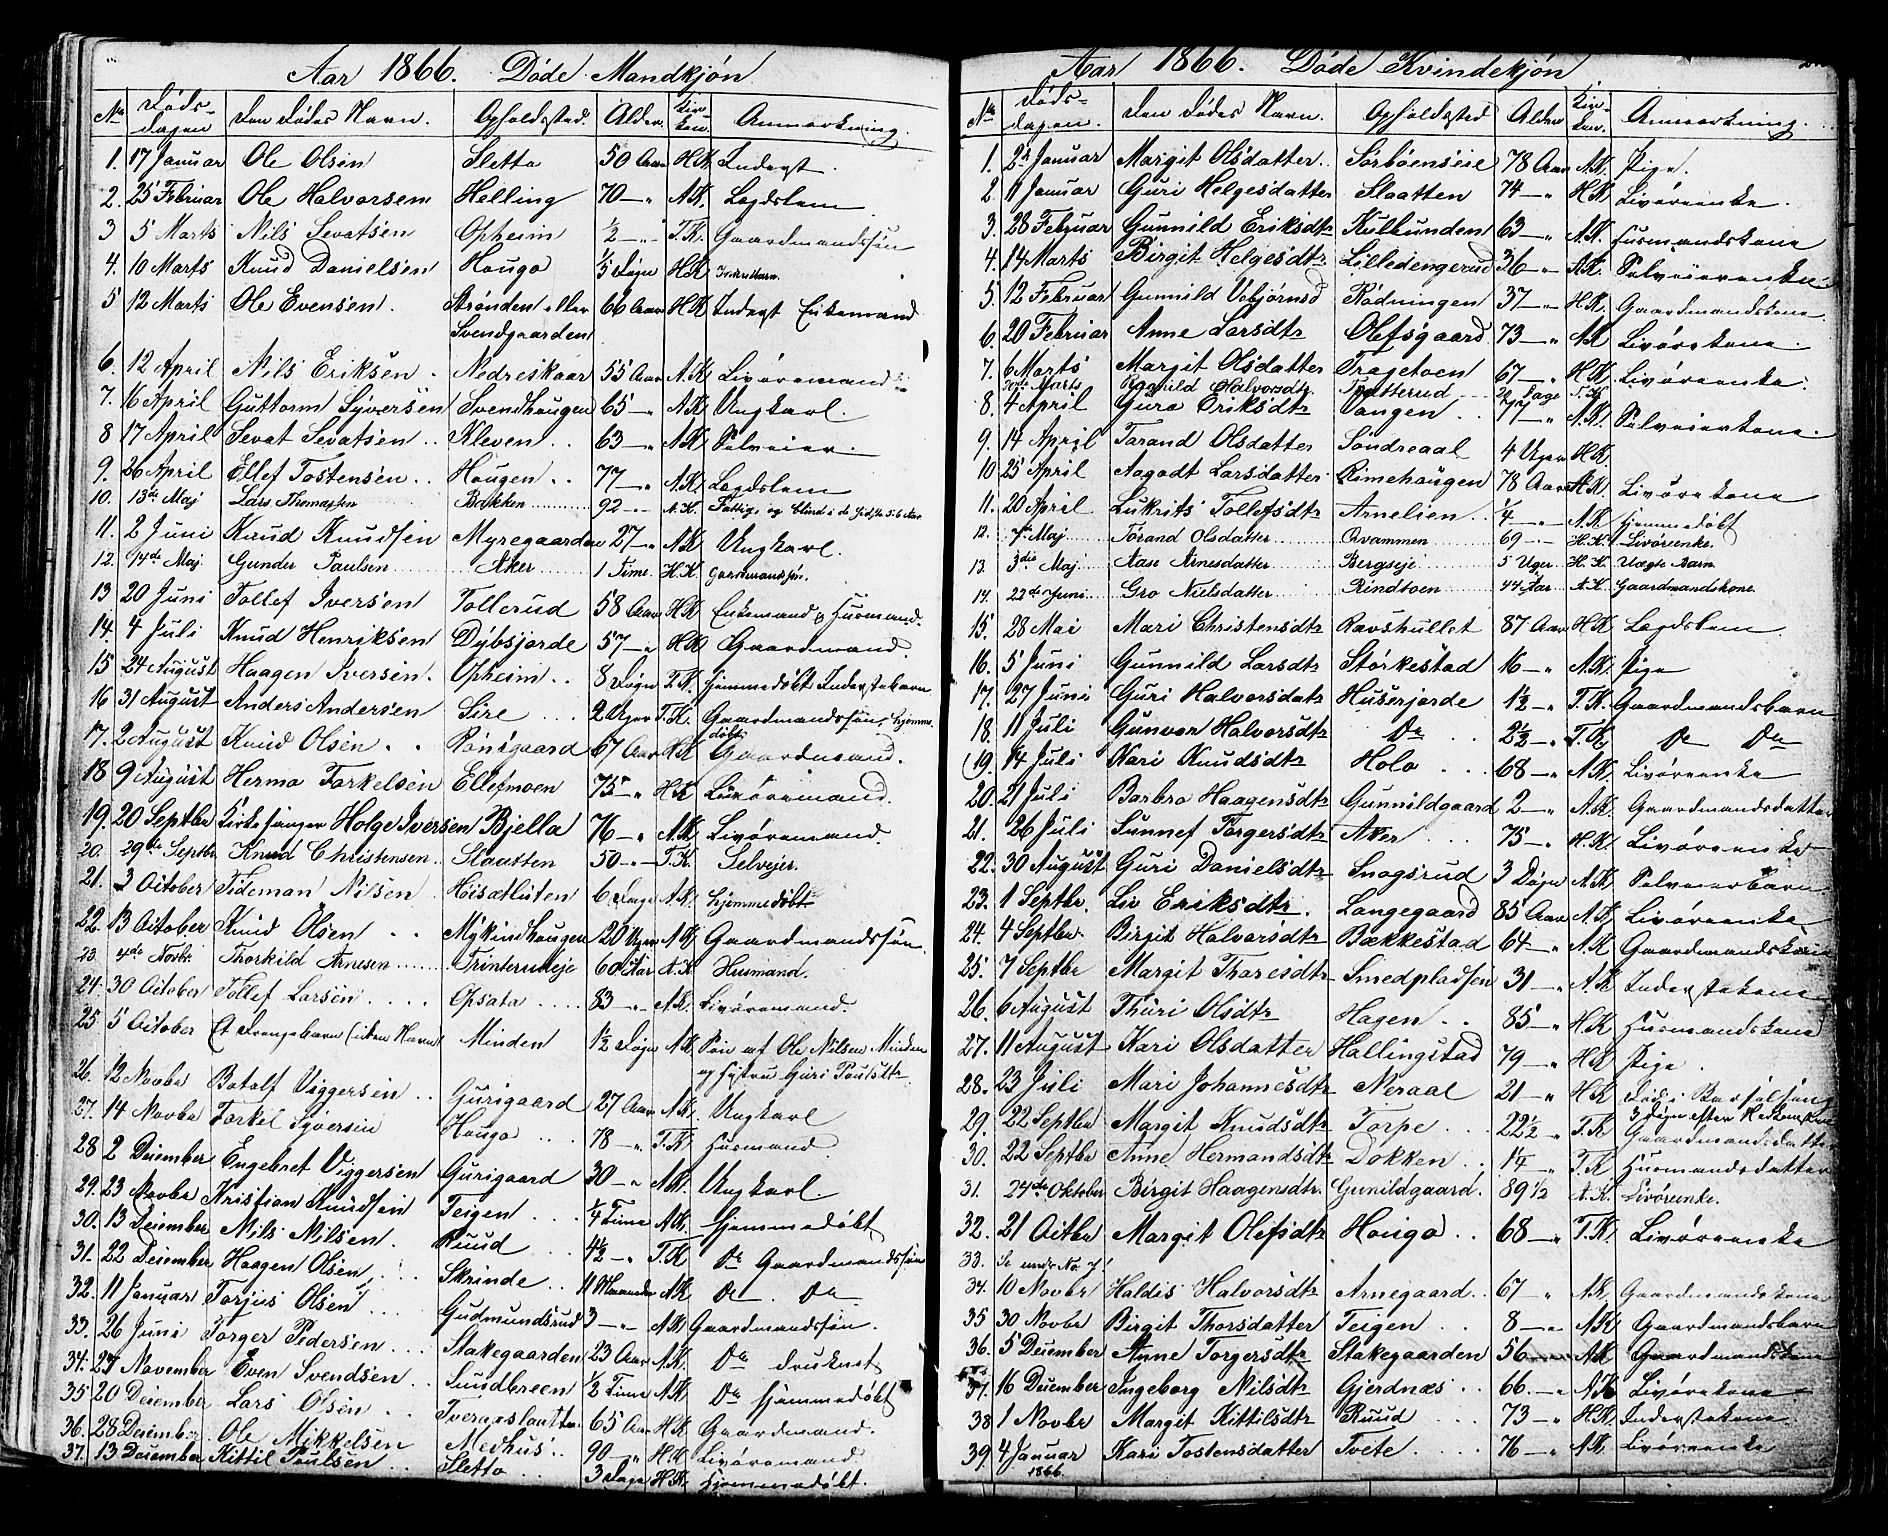 Aar 1866. Døde Mandkjøn.
No Døds-dagen Den Dødes Navn. Opholdssted. Alder. Kirken. Anmærkning.
1. 17 Januar Ole Olsen Sletto 50 Aar H.K. Inderst.
2. 25 Februar Ole Halvorsen Helling 70 —„ A.K. Lægdslem.
3 5 Marts Nils Sevatsen Opheim ½ —„ T.K. Gaardmandssøn
4. 10 Marts Knud Danielsen Haugo ½ Døgn H.K
5 12 Marts Ole Evensen. Strønden eller 66 Aar H.K Inderst Enkemand
Svendgaarden
6. 12 April Nils Eriksen. Nedreskaar 55 Aar A.K Livøremand
7. 16 April Guttorm Syversen Svendhaugen 65 —„ A.K Ungkarl.
8 17 April Sevat Sevatsen .. Kleven .. 63 —„ A.K Selveier.
9. 26 April Ellef Tostensen .. Haugen .. 77 —„ A.K. Lægdslem
10. 13de Maj Lars Thomassen Bakken 92 -- A.K. Fattig og blind i de sidste 5-6 Aar
11. 2 Juni Knud Knudsen Myregaarden 27 —„ A.K Ungkarl.
12. 14de Maj Gunder Paulsen Aker 1 Time H.K Gaardmandssøn.
13 20 Juni Tollef Iversen Tollerud 58 Aar H.K Enkemand & Husmand.
14. 4 Juli Knud Henriksen Dybsjorde 57 —„ H.K Gaardmand
15 24 August Haagen Iversen. Opheim .. 8 Døgn T.K. hjemmedøbt Inderstebarn
16 31 August Anders Andersen Sire ... 2 Uger T.K. Gaardmandssøn, hjemme-
døbt
17. 2 August Knud Olsen . . Rønsgaard 67 Aar H.K Gaardmand.
18 9 August Hermo Torkelsen Ellefmoen 75 —„ H.K Livøremand.
19. 20 Septbr Kirkesanger Holge Iversen Bjella 76 —„ A.K. Livøremand.
20. 29de Septbr Knud Christensen. Slaatten 50 -- T.K. Selvejer.
21. 3 October Tideman Nilsen. Høisætlisten 6 Dage A.K. hjemmedøbt
22. 13 October Knud Olsen . . Mykindhaugen 20 Uger A.K Gaardmandssøn.
23. 4de Novbr. Thorkild Arnesen Trinterudeje 60 Aar A.K. Husmand.
24. 30 October Tollef Larsen .... Opsata .... 83 —„ A.K. Livøremand.
25. 5 October Et Drengebarn (uden Navn) Minden 1½ Døgn A.K Søn af Ole Nilsen Minden
og hustru Guri Poulsdtr
26. 12 Novbr Botolf Viggersen .. Gurigaard 27 Aar A.K. Ungkarl
27. 14 Novbr Torkel Syversen Haugo .. 78 —„ T.K Husmand.
28 2 December Engebret Viggersen Gurigaard 30 —„ A.K. Ungkarl.
29. 23 Novbr Kristian Knudsen Teigen .... ¼ Time A.K. hjemmedøbt
30. 13 December Nils Nilsen. Ruud ... 4½ —„ T.K Do Gaardmandssøn
31. 22 December Haagen Olsen. Skrinde .. 11 Maaneder A.K Do . Do
32. 11 Januar Torjus Olsen ... Gudmundsrud 3 —„ A.K Gaardmandssøn.
33. 26 Juni Torger Pedersen . Stakegaarden 23 Aar A.K. Do druknet
34. 23 November Even Svendsen .. Sundbreen ½ Time A.K. Do hjemmedøbt
35 20 December Lars Olsen .. 65 Aar H.K Gaardmand.
36. 28 December Ole Mikkelsen Medhus .. 90 —„ H.K Livøremand
37. 13 December Kittil Poulsen .. Sletto ... 3 Dage H.K. hjemmedøbt.
Aar 1866. Døde Kvindekjøn
No Døds-dagen. Den Dødes Navn. Opholdssted Alder Kirken. Anmærkning.
1. 2d Januar Margit Olsdatter. Sorbøenseie 78 Aar A.K. Pige.
2. 11 Januar Guri Helgesdatter Slaatten 74 —„ H.K Livøreenke.
3. 28 Februar Gunnild Eriksdtr Kulbunden 63 —„ A.K. Husmandskone
4. 14 Marts Birgit Helgesdtr. Lilledengerud 36 —„ A.K Selveierenke
5. 12 Februar Gunnild Vebjørnsd Rødningen 37 —„ H.K. Gaardmandskone
6. 20 Februar Anne Larsdtr Olefsgaard 73 —„ A.K Livørekone.
7. 6 Marts Margit Olsdatter Tragetoen 67 —„ H.K. Livøreenke.
20de Marts Ragnild Halvorsdtr. Trøtterud 22 Dage T.K
8. 4 April Guro Eriksdtr Vangen .. 77 —„ A.K. Selveierkone.
9. 14 April Tarand Olsdatter Sondreaal 4 Uger H.K.
10 25 April Aagodt Larsdatter Rimehaugen 78 Aar A.K Livørekone
11. 20 April Lukrits Tollefsdtr Arnelien .. ¼ —„ A.K hjemmedøbt
12. 7de Maj Tørand Olsdatter Qvammen 69 -- H.K. Livøreenke.
13. 3die Maj Aase Arnesdatter Bergseje 5 Uger H.K. Uægte Barn
14. 22de Juni Gro Nielsdatter Rindtoen 44 Aar A.K Gaardmandskone
15. 28 Mai Mari Christensdtr Ravshullet 87 Aar H.K Lægdslem.
16. 5 Juni Gunnild Larsdtr Størkestad 16 —„ A.K. Pige
17. 27 Juni Guri Halvorsdatr Huserjorde 1½ —„ T.K. Gaardmandsbarn
18. 11 Juli Gunvor Halvorsdtr Do .. 2½ —„ T.K. Do Do
(19. 14 Juli Kari Knudsdtr Holo .. 68 —„ A.K. Livøreenke
20. 21 Juli Barbro Haagensdtr Gunnildgaard 2 —„ A.K. Gaardmandsdatter
21. 26 Juli Sunnef Torgersdtr Aker .. 75 —„ H.K. Livøreenke
22. 30 August Guri Danielsdtr Snogsrud 3 Døgn A.K. Selveierbarn
23. 1 Septbr. Liv Eriksdtr. Langegaard 85 Aar A.K. Livøreenke
24. 4 Septbr. Birgit Halvorsdtr Bækkestad 64 —„ A.K Gaardmandskone
25. 7 Septbr Margit Tharesdtr Smedpladsen 31 —„ A.K Inderstekone
26. 6 August Thuri Olsdtr Hagen .. 85 —„ H.K Husmandskone
27. 11 August Kari Olsdatter Hallingstad 79 —„ H.K Pige.
28. 23 Juli Mari Johannesdtr Neraal 21 —„ H.K død i Barselseng
3 Dage efter Nedkomsten
29. 22 Septbr Margit Knudsdtr Torpe .. 22½ —„ T.K Gaardmandsdatter
30. 22 Septbr Anne Hermandsdtr Døkken .. 14 —„ T.K Husmandsdatter
31. 24de Oktober Birgit Haagensdtr. Gunildgaard. 89 ½ A.K. Livøreenke.
32. 21 Octbr Margit Olefsdtr Haugo .. 68 —„ T.K Livøreenke
33. Se under No. 7!
34. 10 Novbr Haldis Halvorsdtr Arnegaard .. 67 —„ A.K Gaardmandskone
35 30 Novbr Birgit Thorsdatter Teigen .. 8 —„ A.K Gaardmandsbarn
36. 5 December Anne Torgersdtr Stakegaarden 56 —„ A.K Gaardmandskone
37. 16 December Ingeborg Nilsdtr Gjerdnæs .. 66. —„ A.K Livørekone
38 1 Novbr Margit Kittilsdtr Ruud ... 73 —„ H.K. Inderstekone
39. 4 Januar Kari Tostensdatter Tvete .... 76 —„ A.K. Livøreenke
1866.